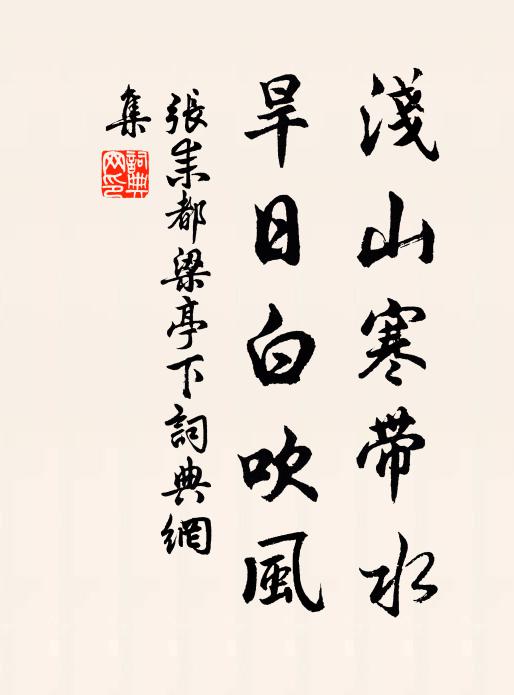 淺山寒帶水
旱日白吹風
張耒都梁亭下詞典網
集
詞典網印